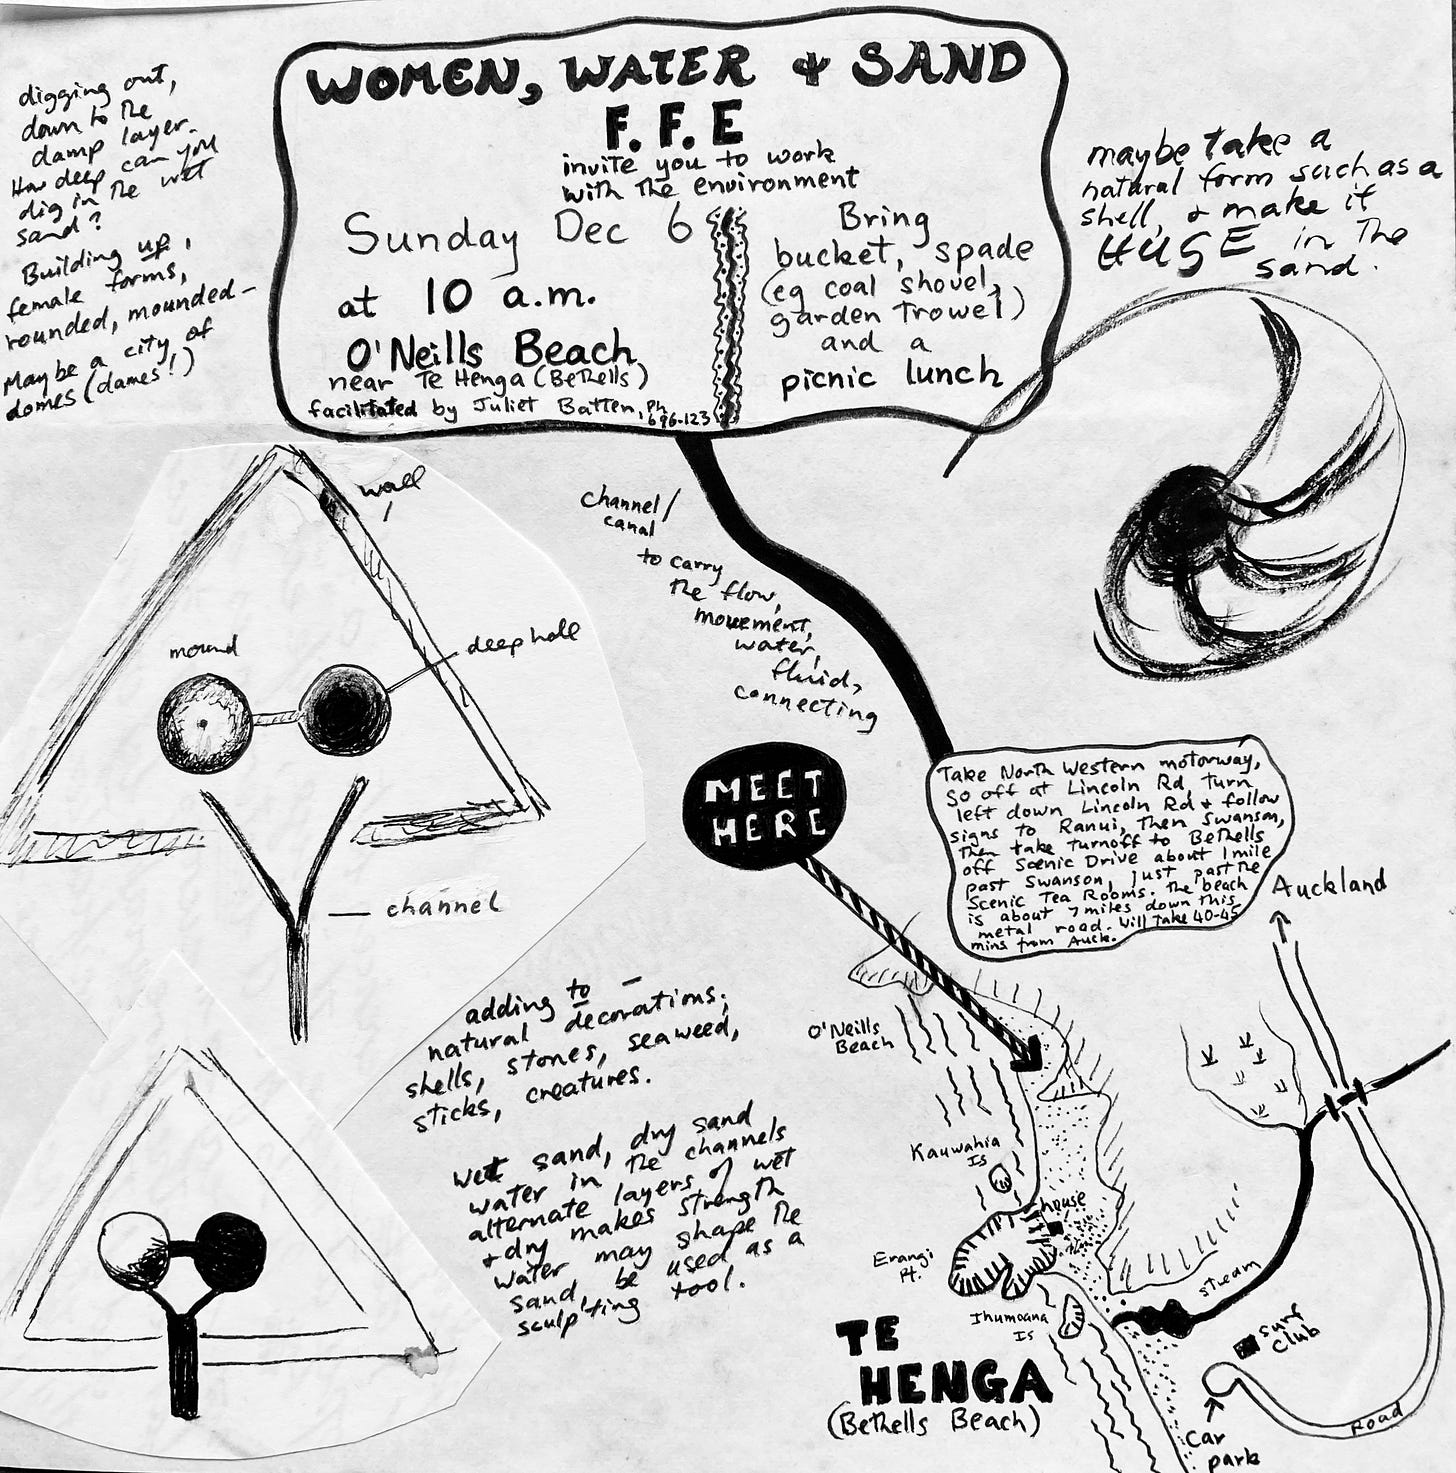 WOMEN, WATER & SAND
F. F. E
invite you to work
with the environment
Sunday Dec 6
at 10 a.m.
O'Neills Beach
near Te Henga (Bethells)
facilitated by Juliet Batten, Ph
696-123
Bring
bucket, spade
(eg coal shovel,
garden trowel)
and a
picnic lunch
digging out,
down to the
damp layer.
How deep can you
dig in the wet
sand?
Building up,
female forms,
rounded, mounded –
Maybe a city of
domes (dames!)
maybe take a
natural form such as a
shell, & make it
HUGE in the
sand.
wall
mound
deep hole
channel
Channel/
canal
to carry
the flow,
movement,
water,
fluid,
connecting
MEET
HERE
Take North Western motorway,
go off at Lincoln Rd, turn
left down Lincoln Rd & follow
signs to Ranui, then Swanson,
then take turnoff to Bethells
off Scenic Drive about 1 mile
past Swanson, just past the
Scenic Tea Rooms. The beach
is about 7 miles down this
metal road. Will take 40-45
mins from Auck.
adding to –
natural decorations;
shells, stones, seaweed,
sticks, creatures.
wet sand, dry sand
water in the channels
alternate layers of wet
& dry makes strength
water may shape the
sand, be used as a
sculpting tool.
Auckland
O'Neills
Beach
Kauwahia
Is
house
Erangi
Pt.
Ihumoana
Is
stream
surf
club
TE
HENGA
(Bethells Beach)
Car
park
Road